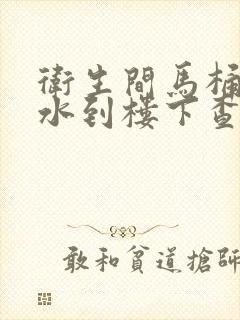 衛生間馬桶
水到樓下查
敢和貧道搶師